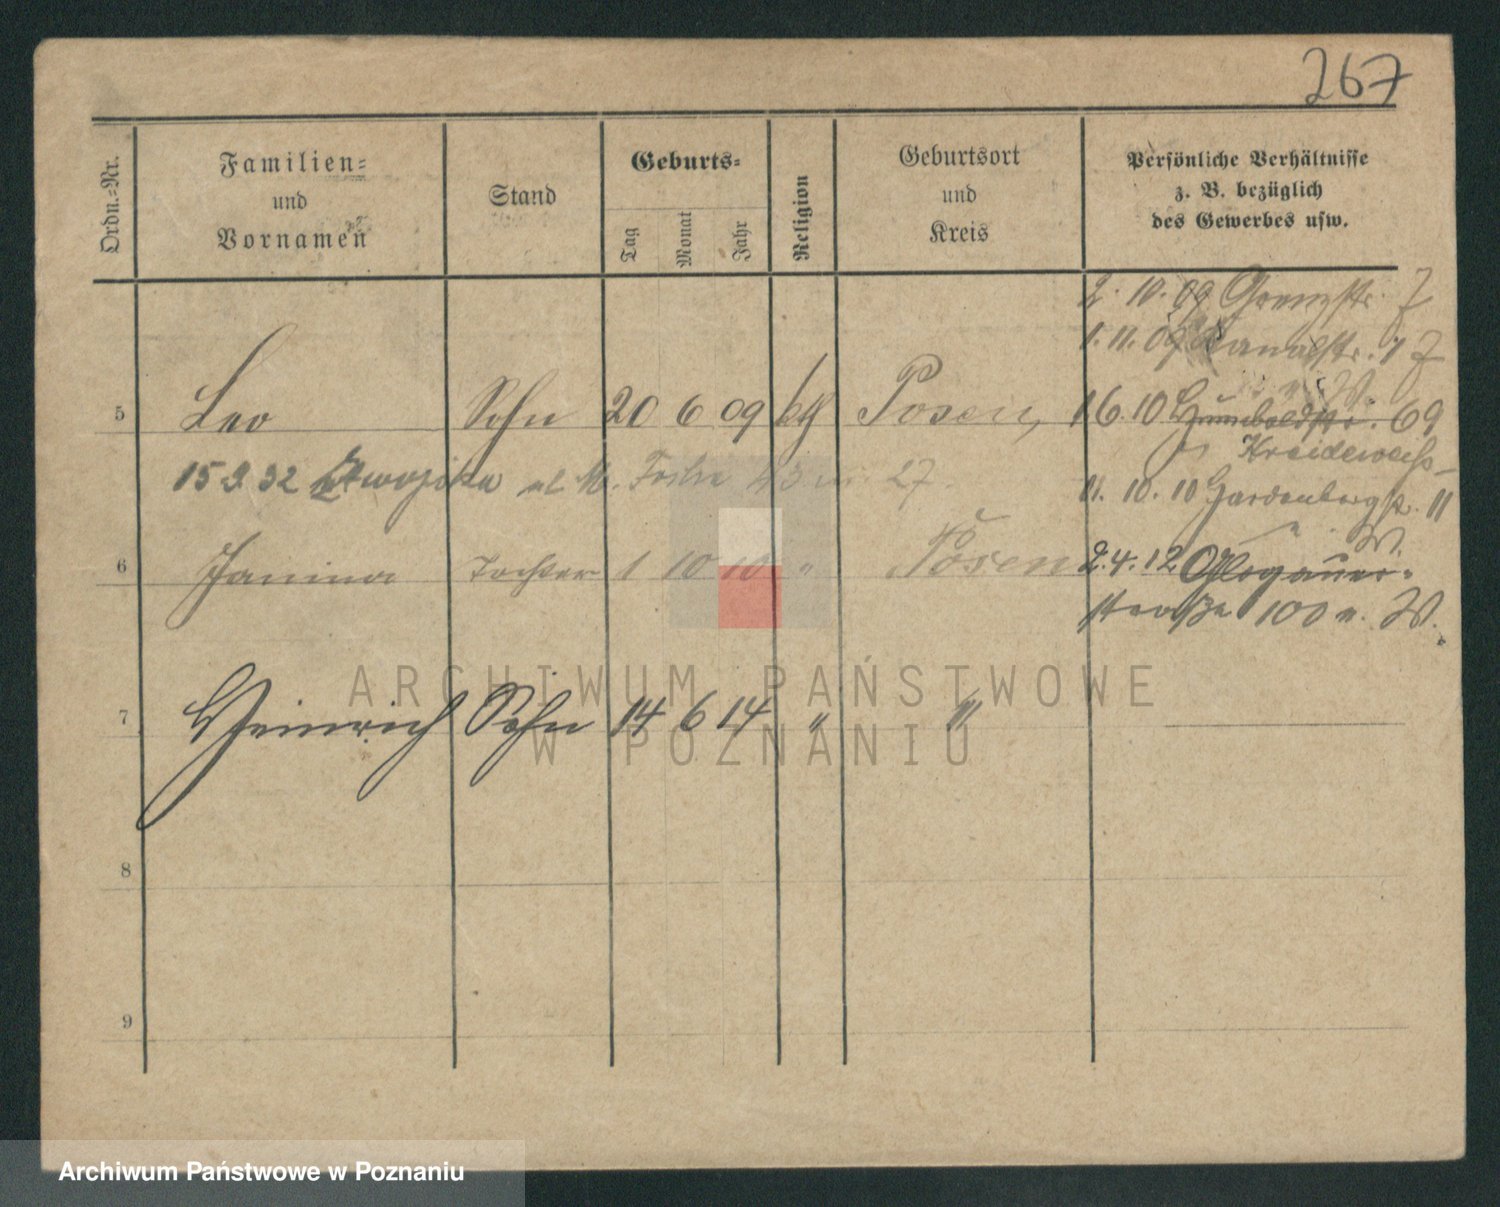 267
Ordn.-Nr.
Familien-
und
Vornamen
Stand
Geburts-
Tag
Monat
Jahr
Religion
Geburtsort
und
Kreis
Persönliche Verhältnisse
z. B. bezüglich
des Gewerbes usw.
2. 10. 09 Grenzstr. 7
1. 11. 09 Kanalstr. 17
W.
5 Leo Sohn 20 6 09 Posen, 1.6.10 Humboldtstr. 69
15 9 32 43 27.
11. 10. 10 Hardenbergstr. 11
W.
6 Janina Tochter 1 10 10 " Posen 2.4.12 Glogauer-
straße 100 W.
7 Heinrich Sohn 14 6 14 " "
8
9
ARCHIWUM PAŃSTWOWE
W POZNANIU
Archiwum Państwowe w Poznaniu